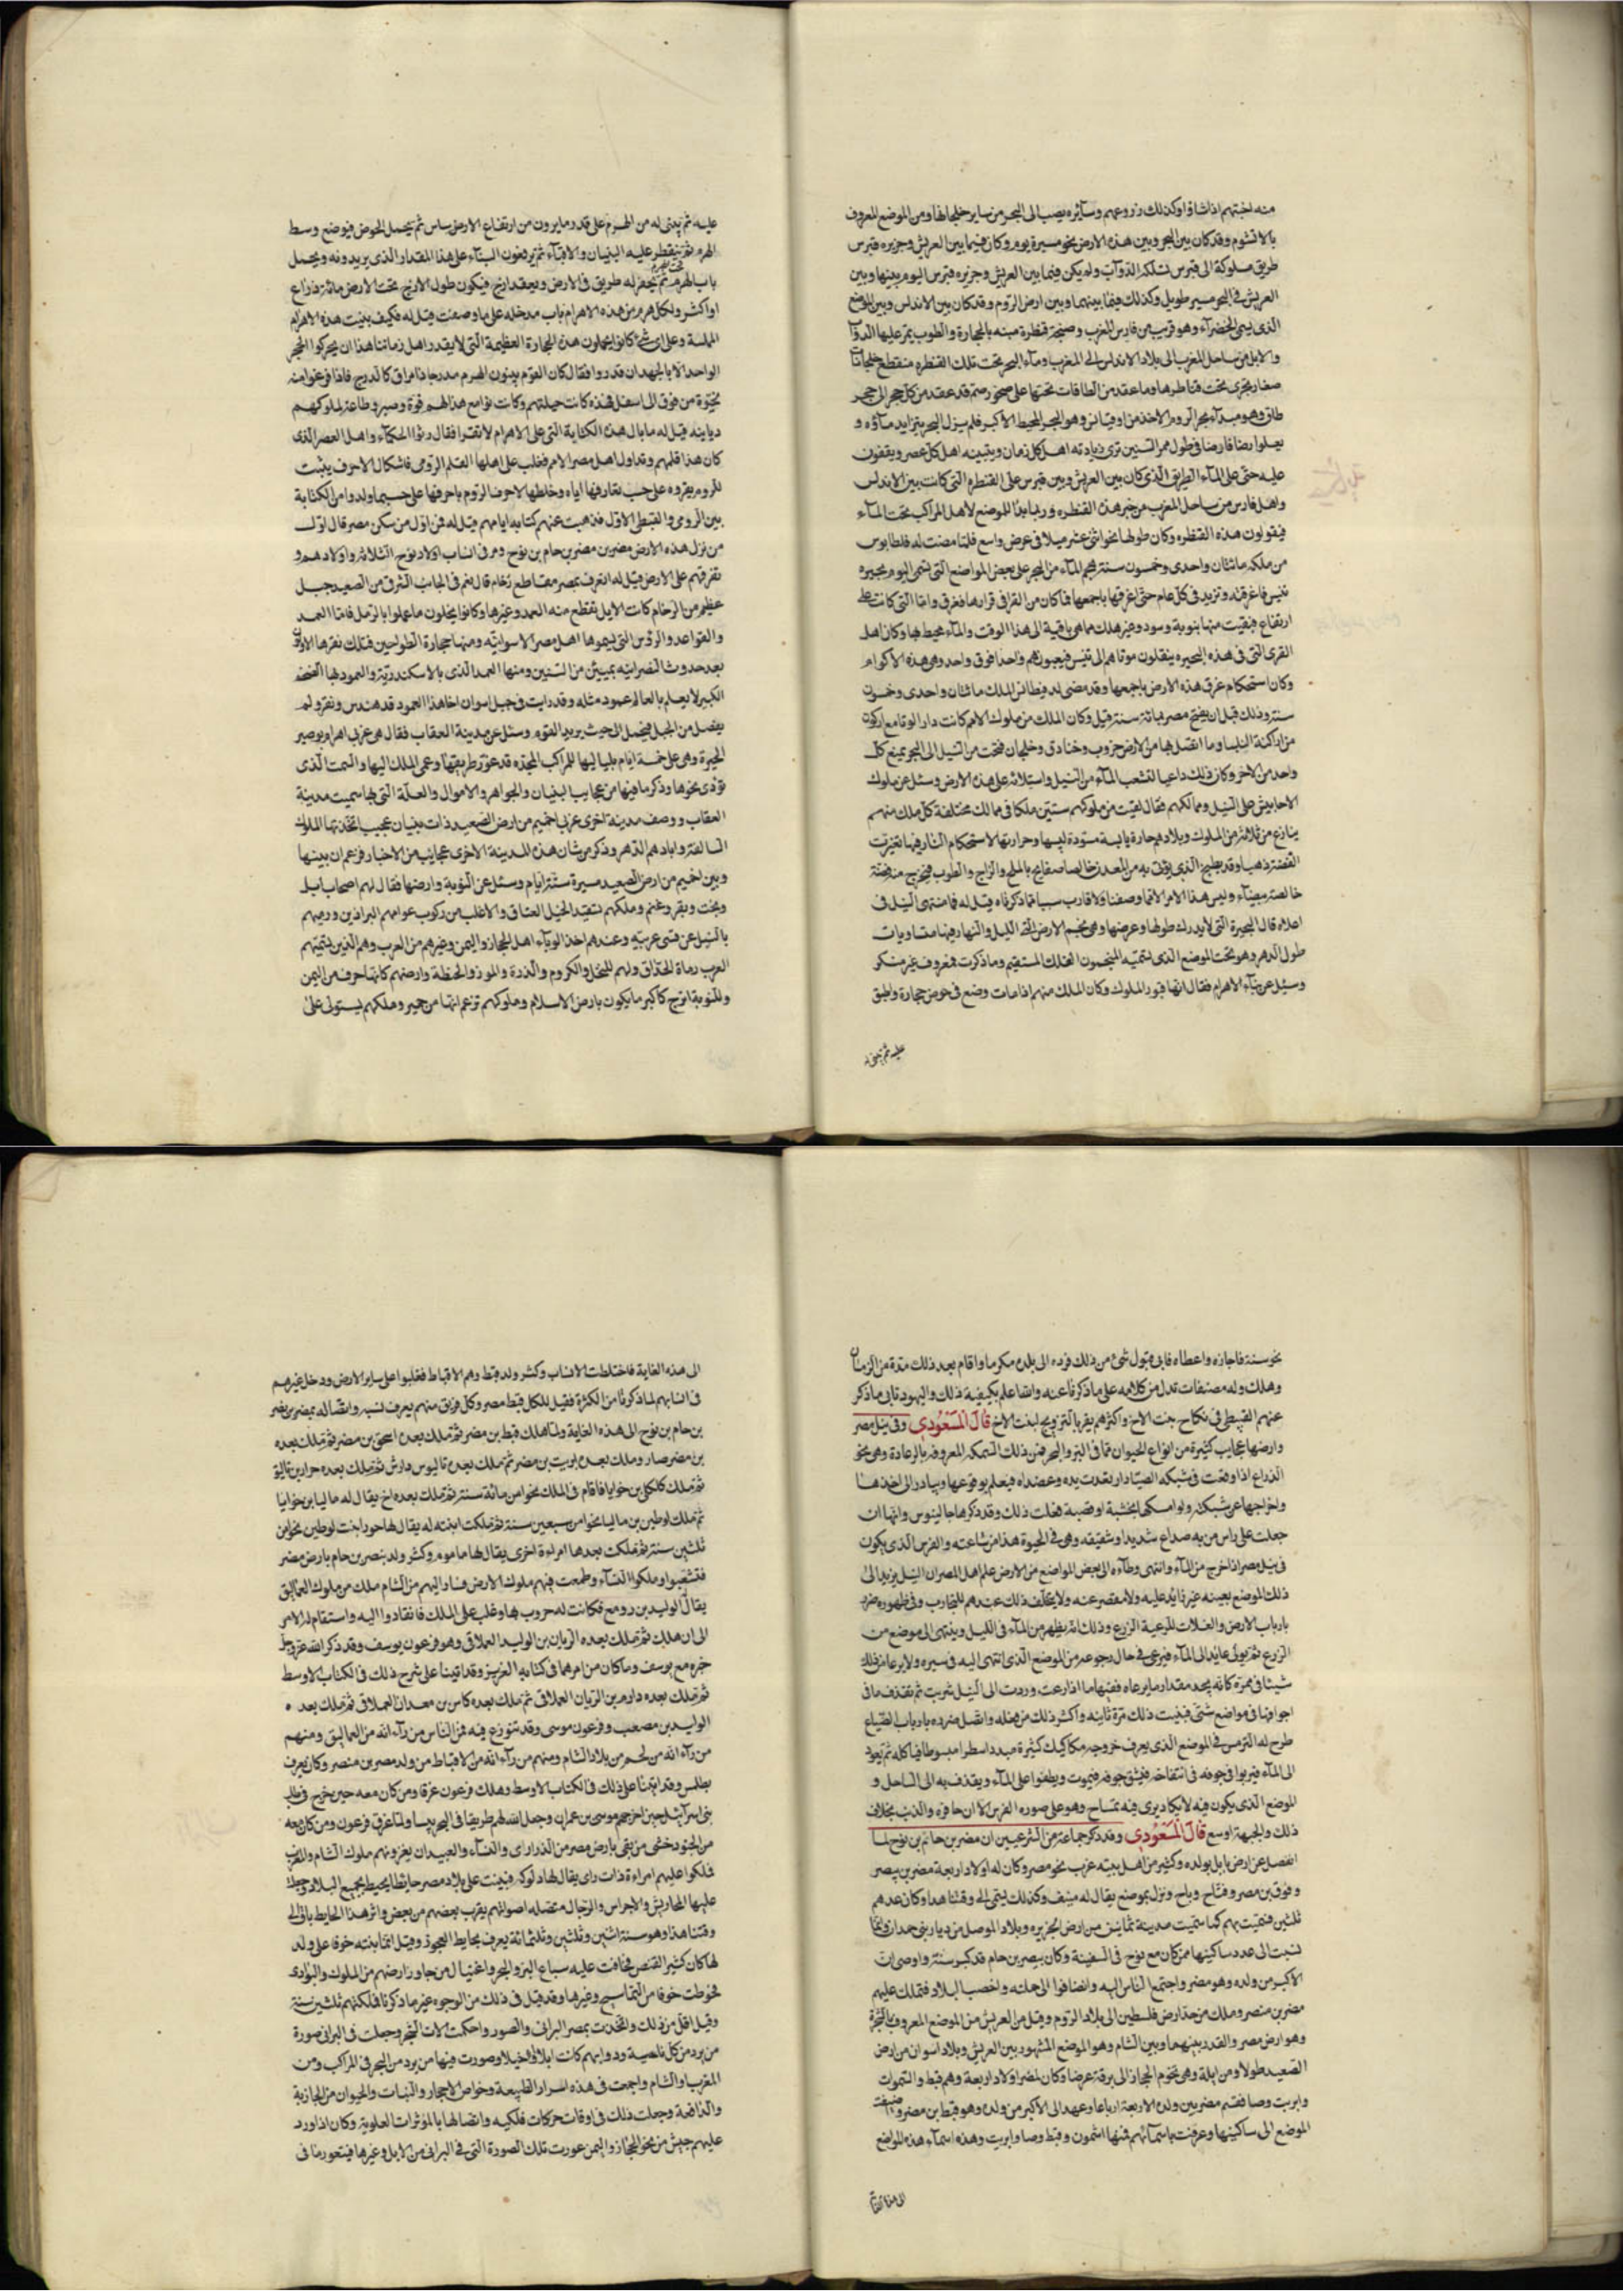 منه اجنتهم اذا شاؤا وكذلك زروعهم وسائره يصب الى البحر من ساير خلجانها ومن الموضع المعروف
بالاشتوم وقد كان بين البحر وبين هذه الارض نحو مسيرة يوم وكان فيما بين العريش وجزيره قبرس
طريق مسلوكة الى قبرس تسلكه الدواب ولم يكن فيما بين العريش وجزيره قبرس اليوم بينها وبين
العريش في البحر مسير طويل وكذلك فيما بينهما وبين ارض الروم وقد كان بين الاندلس وبين الموضع
الذى يسمى الخضراء وهو قريب من فارس المغرب وطنجة قنطرة مبنه بالحجارة والطوب يمر عليها الدواب
والابل من ساحل المغرب الى بلاد الاندلس الى المغرب وماء البحر تحت تلك القنطره منقطع خلجانات
صغار يجرى تحت قناطرها وما عقد من الطاقات تحتها على صخور صم قد عقد من كل حجر الى حجر
طاق وهو مبداء بحر الروم الاخذ من اوقيانس وهو البحر المحيط الاكبر فلم يزل البحر يتزايد ماؤه و
يعلوا رضا فارضا في طول ممر السنين ترى زيادته اهل كل زمان ويتبينه اهل كل عصر ويقفون
عليه حتى على الماء الطريق الذى كان بين العريش وبين قبرس على القنطره التى كانت بين الاندلس
واهل فارس من ساحل المغرب من خبر هذه القنطره وربما بدا الموضع لاهل المراكب تحت الماء
فيقولون هذه القنطره وكان طولها نحو اثنى عشر ميلا في عرض واسع فلما مضت له قلطابوس
من ملكه مائتان واحدى وخمسون سنة هجم الماء من البحر على بعض المواضع التى تسمى اليوم بحيره
تنيس فاغرقته وتزيد في كل عام حتى اغرقها باجمعها فما كان من القرا في قرارها فغرق واما التى كانت على
ارتفاع فبقيت منها بنوبة وسود وغير هلك مما هى باقية الى هذا الوقت والماء محيط بها وكان اهل
القرى التى في هذه البحيره ينقلون موتاهم الى تنيس فيعبرونهم واحدا فوق واحد وهى هذه الاكوام
وكان استحكام غرق هذه الارض باجمعها وقد مضى لدقيطانس الملك مائتان واحدى وخمسون
سنة وذلك قبل ان يفتح مصر بمائة سنة قيل وكان الملك من ملوك الامم كانت دار الوقا مع اركون
من اراكنة البليسا وما اتصل بها من الارض حزوب وخنادق وخلجان فتحت من النيل الى البحر يمنع كل
واحد من الاخر وكان ذلك داعيا لتشعب الماء من النيل واستلائه على هذه الارض وسئل عن ملوك
الاحابيش على النيل وممالكهم فقال لقيت من ملوكهم ستين ملكا في ممالك مختلفة كل ملك منهم
ينازع من ثلاثة من الملوك وبلادهم حارة يابسة مسودة ليبسها وحرارتها لاستحكام النار فيها تغيرت
الفضة ذهبا وقد يطبخ الذى يؤتى به من المعدن خالصا صفايح بالملح والزاج والطوب فيخرج منه فضة
خالصة بيضاء وليس هذا الامر الا مما وصفنا ولا قارب سببا مما ذكرناه قيل له فما منتهى النيل في
اعلاه قال البحيرة التى لا يدرك طولها وعرضها وهى نجم الارض التى الليل والنهار فيها متساويات
طول الدهر وهو تحت الموضع الذى تسميه المنجمون الفلك المستقيم وما ذكرت فمعروف غير منكر
وسئل عن بناء الاهرام فقال انها قبور الملوك وكان الملك منهم اذا مات وضع في حوض حجارة واطبق
عليه ثم يبنى له
عليه ثم يبنى له من الهرم على قدر ما يرون من ارتفاع الارض ساس ثم يحمل الحوض فيوضع وسط
الهرم ثم ينقطر عليه البنيان والاقباء ثم يرفعون البناء على هذا المقدار الذى يريدونه ويحمل
باب الهرم تحت الهرم ثم يحفر له طريق في الارض ويعقد ازج فيكون طول الازج تحت الارض مائة ذراع
او اكثر ولكل هرم من هذه الاهرام باب مدخله على ما وصفت قيل له فكيف بنيت هذه الاهرام
الملسة وعلى اى شئ كانوا يحملون هذه الحجارة العظيمة التى لا يقدر اهل زماننا هذا ان يحركوا الحجر
الواحد الا بالجهد ان قدروا فقال كان القوم يبنون الهرم مدرجا ذا مراق كالدرج فاذا فرغوا منه
نحتوه من فوق الى اسفل فهذه كانت حيلتهم وكانت نوامع هذا لهم قوة وصبر وطاعة لملوكهم
ديانيه قيل له ما بال هذه الكتابة التى على الاهرام لا تقرا فقال رئوا الحكماء واهل العصر الذى
كان هذا قلمهم وتداول اهل مصر الامم فغلب على اهلها القلم الرومى فاشكال الاحرف يثبت
للروم يقروه على حسب تعارفها اياه وخلطها الاحرف الروم باحرفها على حسب ما ولدوا من الكتابة
بين الرومى والقبطى الاول فذهبت عنهم كتابه ابايهم قيل له فمن اول من سكن مصر قال اول
من نزل هذه الارض مصر بن مصر بن حام بن نوح ومر في انساب اولاد نوح الثلاثه واولادهم و
تفرقهم على الارض قيل له اتعرف بمصر مقاطع رخام قال نعم في الجانب الشرقى من الصعيد جبل
عظيم من الرخام كانت الاول يقطع منه العمد وغيرها وكانوا يجلون ما عملوا بالرمل فاما العمد
والقواعد والرؤس التى يسموها اهل مصر الاسوانيه ومنها حجارة الطواحين فتلك نقرها الاولون
بعد حدوث النصرانيه بميئين من السنين ومنها العمد الذى بالاسكندريه والعمود لها الضخم
الكبير لا يعلم بالعالم عمود مثله وقد رايت في جبل اسوان اخا هذا العمود قد هندس ونقر ولم
يفصل من الجبل فيحمل الى حيث يريد القوم وسئل عن مدينة العقاب فقال هى غربى اهرام بوصير
الجيزة وهى على خمسة ايام بلياليها للراكب المجده قد عور طريقها وعمى الملك اليها والسمت الذى
تؤدى نحوها وذكر ما فيها من عجايب البنيان والجواهر والاموال والعلة التى لها سميت مدينة
العقاب ووصف مدينة اخرى غربى اخميم من ارض الصعيد ذات بنيان عجيب اتخذتها الملوك
السالفه وابادهم الدهر وذكر من شان هذه المدينة الاخرى عجايب من الاخبار فزعم ان بينها
وبين اخميم من ارض الصعيد مسيرة ستة ايام وسئل عن النوبة وارضها فقال لهم اصحاب ابل
وبخت وبقر وغنم وملكهم تتقيد الخيل العتاق والاغلب من ركوب عوامهم البراذين ورميهم
بالنبل عن قسى عربيه وعندهم اخذ الرماء اهل الحجاز واليمن وغيرهم من العرب وهم الذين يسميهم
العرب رماة الحذاق ولهم النخل والكروم والذرة والموز والحنطة وارضهم كانها حرف من اليمن
وللنوبة اترج كاكبر ما يكون بارض الاسلام وملوكهم تزعم انها من حمير وملكهم يستولى على
نحو سنة فاجازه واعطاه فابى قبول شئ من ذلك فرده الى بلده مكرما واقام بعد ذلك مدة من الزمان
وهلك وله مصنفات تدل من كلامه على ما ذكرنا عنه والله اعلم بكيفية ذلك واليهود تابى ما ذكر
عنهم القبطى في نكاح بنت الاخ واكثرهم يقر بالتزويج لبنت الاخ قال المسعودى وفى نيل مصر
وارضها عجايب كثيرة من انواع الحيوان مما في البر والبحر فمن ذلك السمكه المعروفه بالرعادة وهى نحو
الذراع اذا وقعت في شبكه الصياد ارتعدت يده وعضداه فيعلم بوقوعها ويبادر الى اخذها
واخراجها عن شبكته ولو امسكها بخشبة او قصبة فعلت ذلك وقد ذكرها جالينوس وانها ان
جعلت على راس من به صداع شديد او شقيقه وهى في الحيوة هدا من ساعته والفرس الذى يكون
في نيل مصر اذا خرج من الماء وانتهى وطاؤه الى بعض المواضع من الارض علم اهل المصر ان النيل يزيد الى
ذلك الموضع بعينه غير زايد عليه ولا مقصر عنه ولا يختلف ذلك عندهم للتجارب وفى ظهوره ضرر
بارباب الارض والغلات لرعية الزرع وذلك انه يظهر من الماء في الليل وينتهى الى موضع من
الزرع ثم يولى عايدا الى الماء فيرعى في حال رجوعه من الموضع الذى انتهى اليه في سيره ولا يرعا من ذلك
شيئا في ممره كانه يحدد مقدار ما يرعاه فمنها ما اذا رعت وردت الى النيل شربت ثم تقذف ما في
اجوافها في مواضع شتى فينبت ذلك مرة ثانيه واكثر ذلك من فعله واتصل ضرره بارباب الضياع
طرح له الترمس في الموضع الذى يعرف خروجه مكاكيك كثيرة مبددا سطرا مبسوطا فياكله ثم يعود
الى الماء فيربوا في جوفه في انتفاخه فينشق جوفه فيموت ويطفوا على الماء ويقذف به الى الساحل و
الموضع الذى يكون فيه لا يكاد يرى فيه تمساح وهو على صوره الفرس الا ان حافره والذنب بخلاف
ذلك والجبهة اوسع قال المسعودى وقد ذكر جماعة من الشرعيين ان مصر بن حام بن نوح لما
انفصل عن ارض بابل بولده وكثير من اهل بيته غرب نحو مصر وكان له اولاد اربعة مصر بن بيصر
وفوق بن مصر وفتاح وباح ونزل بموضع يقال له منيف وكذلك يسمى الى وقتنا هذا وكان عدهم
ثلثين فسميت بهم كما سميت مدينة ثمانين من ارض الجزيره وبلاد الموصل من ديار بنى حمدان وانما
نسبت الى عدد ساكنيها ممن كان مع نوح في السفينة وكان بيصر بن حام قد كبر سنه واوصى ان
الاكبر من ولده وهو مصر واجتمع الناس اليه وانضافوا الى جملته واخصب البلاد فتملك عليهم
مصر بن منصر وملك من حد ارض فلسطين الى بلاد الروم وقيل من العريش من الموضع المعروف بالشجرة
وهو ارض مصر والقدر بينهما وبين الشام وهو الموضع المشهور بين العريش وبلاد اسوان من ارض
الصعيد طولا ومن ايلة وهى تخوم الحجاز الى برقة عرضا وكان لمصر اولاد اربعة وهم قبط واشمون
وابريت وصا فقسم مصر بين ولده الاربعة ارباعا وعهد الى الاكبر من ولده وهو قبط بن مصر وضيفت
الموضع الى ساكنيها وعرفت باسمائهم فمنها اشمون وقبط وصا وابريت وهذه اسماء هذه المواضع
الى هذه الغاية
الى هذه الغاية فاختلطت الانساب وكثر ولد قبط وهم الاقباط فغلبوا على ساير الارض ودخل غيرهم
في انسابهم لما ذكرنا من الكثرة فقيل للكل قبط مصر وكل فريق منهم يعرف نسبه واتصاله بمصر بن بيصر
بن حام بن نوح الى هذه الغاية ولما هلك قبط بن مصر ثم ملك بعده اعيق بن مصر ثم ملك بعده
بن مصر صار وملك بعده ابريت بن مصر ثم ملك بعده تاليوس دارش ثم ملك بعده حرار بن تاليق
ثم ملك كالكلى بن خرابا فاقام في الملك نحوا من مائة سنة ثم ملك بعده اخ يقال له ماليا بن خرابا
ثم ملك لوطين بن ماليا نحوا من سبعين سنة ثم ملكت ابنته له يقال لها حورا بنت لوطين نحوا من
ثلثين سنة ثم ملكت بعدها امراءة اخرى يقال لها ماموم وكثر ولد بنصر بن حام بارض مصر
فتشعبوا وملكوا النساء وطمعت فيهم ملوك الارض فسار اليهم من الشام ملك من ملوك العماليق
يقال الوليد بن دومع فكانت له حروب بها وغلب على الملك فانقادوا اليه واستقام له الامر
الى ان هلك ثم ملك بعده الريان بن الوليد العملاقى وهو فرعون يوسف وقد ذكر الله عز وجل
خبره مع يوسف وما كان من امرهما في كتابه العزيز وقد اتينا على شرح ذلك في الكتاب الاوسط
ثم ملك بعده دارم بن الريان العملاقى ثم ملك بعده كاس بن معدان العملاقى ثم ملك بعده
الوليد بن مصعب وفرعون موسى وقد تنوزع فيه فمن الناس من راء انه من العماليق ومنهم
من راء انه من لخم من بلاد الشام ومنهم من راء انه من الاقباط من ولد مصر بن منصر وكان يعرف
بطلس وقد اتينا على ذلك في الكتاب الاوسط وهلك فرعون غرقا ومن كان معه حين خرج في طلب
بنى اسرائيل حين اخرجهم موسى بن عمران وجعل الله لهم طريقا في البحر يبسا ولما غرق فرعون ومن كان معه
من الجنود خشى من بقى بارض مصر من الذرارى والنساء والعبيد ان يغزوهم ملوك الشام والمغرب
فملكوا عليهم امراءة ذات راى يقال لها دلوكه فبنت على بلاد مصر حايطا يحيط بجميع البلاد وجعلت
عليها المحارس والاجراس والرجال متصله اصواتهم يقرب بعضهم من بعض واثر هذا الحايط باق الى
وقتنا هذا وهو سنة اثنين وثلثين وثلثمائة يعرف بحايط العجوز وقيل انما بنته خوفا على ولد
لها كان كثير القنص فخافت عليه سباع البر والبحر واغتيال من جاور ارضهم من الملوك والبوادى
فحوطت خوفا من التماسيح وغيرها وقد قيل في ذلك من الوجوه غير ما ذكرنا فملكتهم ثلثين سنة
وقيل اقل من ذلك واتخذت بمصر البرانى والصور واحكمت الات السحر وجعلت في البرانى صورة
من يرد من كل ناحية ودوابهم كانت ابلا او خيلا وصورت فيها من يرد من البحر في المراكب ومن
المغرب والشام وجمعت في هذه اسرار الطبيعة وخواص الاحجار والنبات والحيوان من الجاذبة
والدافعة وجعلت ذلك في اوقات حركات فلكيه واتصالها بالمؤثرات العلويه وكان اذا ورد
عليهم جيش من نحو الحجاز واليمن عورت تلك الصورة التى في البرانى من الابل وغيرها فيتعور ما في